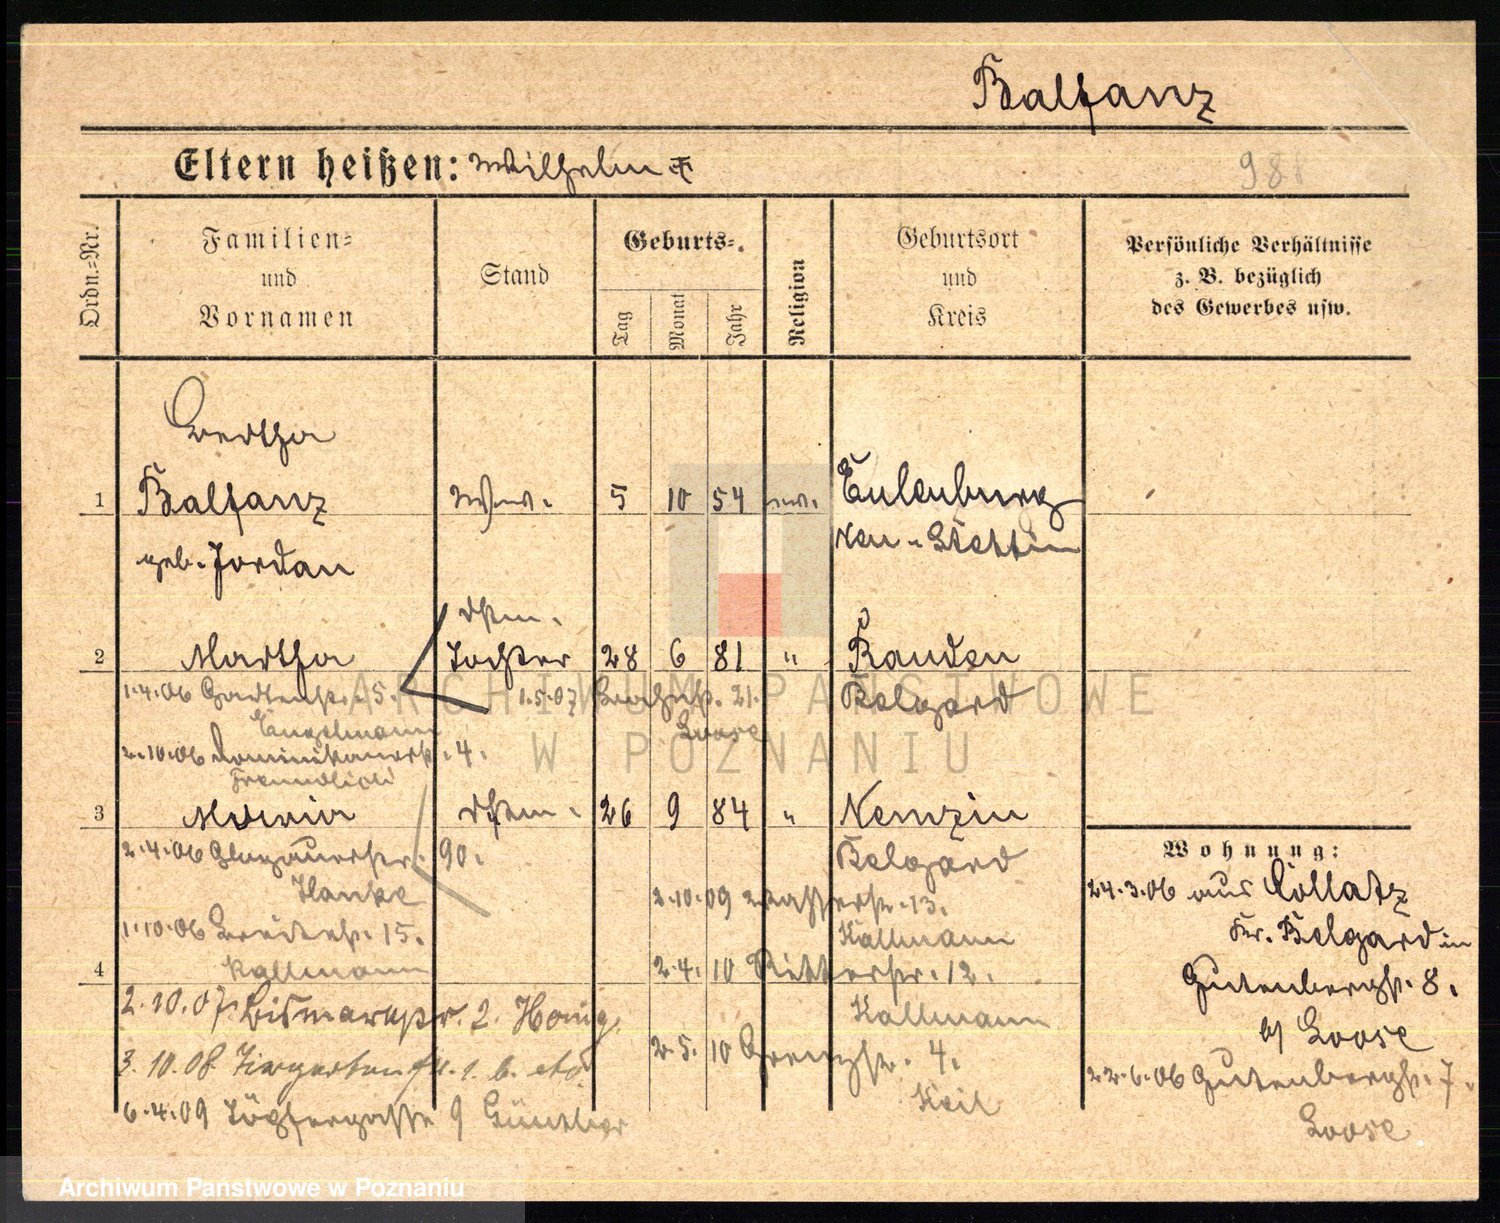 Balfanz
Eltern heißen: Wilhelm
98
Ordn.-Nr.
Familien-
und
Vornamen
Stand
Geburts-
Tag
Monat
Jahr
Religion
Geburtsort
und
Kreis
Persönliche Verhältnisse
z. B. bezüglich
des Gewerbes usw.
Bertha
1 Balfanz Ww. 5 10 54 ev. Eulenburg
geb. Jordan Neu-Stettin
2 Martha Tochter 28 6 81 " Rauden
Belgard
1.4.06 Gartenstr. 5. 1.5.07 21.
Engelmann Loose
2.10.06 Dominikanerstr. 4.
Freundlich
3 26 9 84 " Nemzin
Belgard
2.4.06 Glogauerstr. 90.
Hanke
1.10.06 15.
Kallmann
4
2.10.07. Bismarckstr. 2. Honig
3.10.08 Tiergartenstr. 1. b.
6.4.09 Töpfergasse 9 Günther
2.10.09 13.
Kallmann
2.4.10 Ritterstr. 12.
Kallmann
2.5.10 Grenzstr. 4.
Keil
Wohnung:
24.3.06 aus Collatz
Kr. Belgard in
Gutenbergstr. 8.
b/ Loose
22.6.06 Gutenbergstr. 7.
Loose
ARCHIWUM PAŃSTWOWE
W POZNANIU
Archiwum Państwowe w Poznaniu